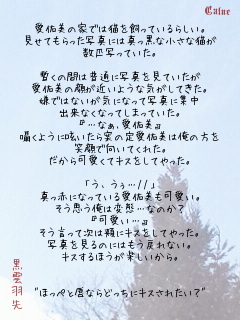 Calue
愛佑美の家では猫を飼っているらしい。
見せてもらった写真には真っ黒な小さな猫が
数匹写っていた。
暫くの間は普通に写真を見ていたが
愛佑美の顔が近いような気がしてきた。
嫌ではないが気になって写真に集中
出来なくなってしまっていた。
『…なぁ､愛佑美』
囁くように呟いたら案の定愛佑美は俺の方を
笑顔で向いてくれた。
だから可愛くてキスをしてやった。
「う、うぅ…//」
真っ赤になっている愛佑美も可愛い。
そう思う俺は変態…なのか?
『可愛い…』
そう言って次は頬にキスをしてやった。
写真を見るのにはもう戻れない。
キスするほうが楽しいから。
黒雲羽矢
"ほっぺと唇ならどっちにキスされたい?"